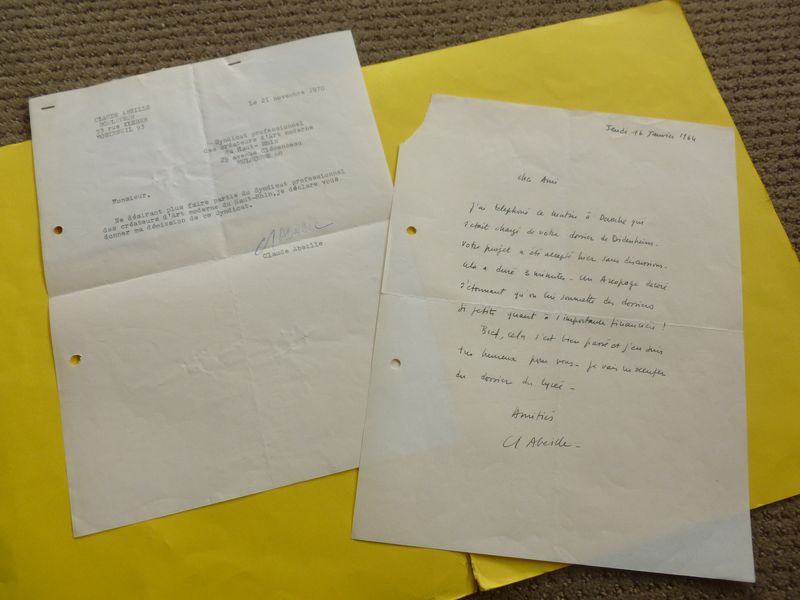 Le 21 novembre 1970
CLAUDE ABEILLE
SCULPTEUR
33 rue KLEBER
MONTREUIL 93
Syndicat professionnel
des créateurs d'Art moderne
du Haut- Rhin
25 avenue Clémenceau
MULHOUSE 68
Monsieur,
Ne désirant plus faire partie du Syndicat professionnel
des créateurs d'Art moderne du Haut-Rhin,je déclare vous
donner ma démission de ce Syndicat.
Cl Abeille
Claude Abeille
Jeudi 16 janvier 1964
cher Ami
J'ai téléphoné ce matin à Deroche qui
s'était chargé de votre dossier de Didenheim.
votre projet a été accepté hier sans discussions.
cela a duré 3 minutes - Un Aréopage décoré
s'étonnant qu'on lui soumette des dossiers
si petits quant à l'importance financière !
Bref, cela s'est bien passé et j'en suis
très heureux pour vous - je vais m'occuper
du dossier du lycée -
Amitiés
Cl Abeille -